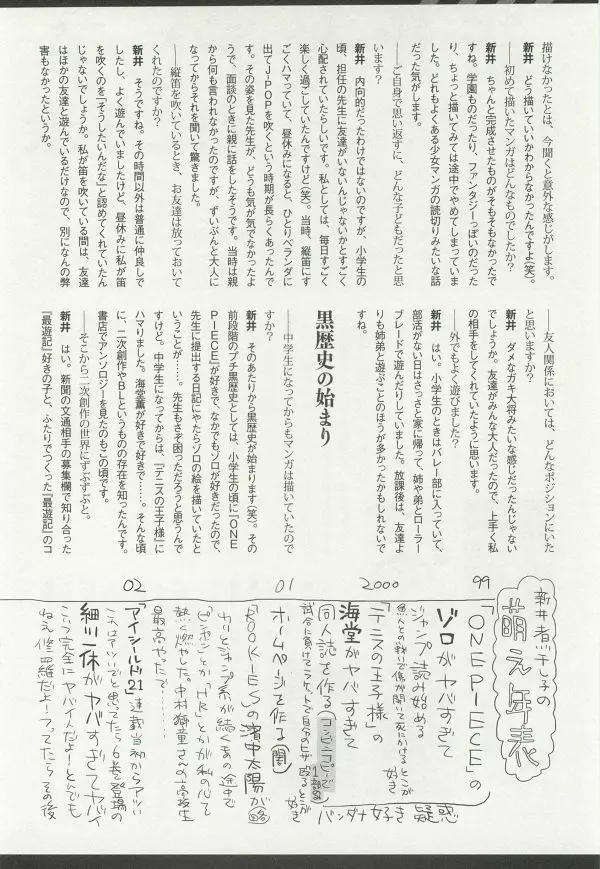 描けなかったとは、今聞くと意外な感じがします。
新井　どう描いていいかわからなかったんですよ(笑)。
──初めて描いたマンガはどんなものでしたか？
新井　ちゃんと完成させたものがそもそもなかったで
すね。学園ものだったり、ファンタジーっぽいのだった
り、ちょっと描いてみては途中でやめてしまっていま
した。どれもよくある少女マンガの読切りみたいな話
だった気がします。
──ご自身で思い返すに、どんな子どもだったと思
います？
新井　内向的だったわけではないのですが、小学生の
頃、担任の先生に友達がいないんじゃないかとすごく
心配されていたらしいです。私としては、毎日すごく
楽しく過ごしていたんですけど(笑)。当時、縦笛にす
ごくハマっていて、昼休みになると、ひとりベランダに
出てJ-POPを吹くという時期が長らくあったんで
す。その姿を見た先生が、どうも気が気でなかったよ
うで、面談のときに親に話をしたそうです。当時は親
から何も言われなかったのですが、ずいぶんと大人に
なってからそれを聞いて驚きました。
──縦笛を吹いているとき、お友達は放っておいて
くれたのですか？
新井　そうですね。その時間以外は普通に仲良しで
したし、よく遊んでいましたけど、昼休みに私が笛
を吹くのを「そうしたいんだな」と認めてくれていたん
じゃないでしょうか。私が笛を吹いている間は、友達
はほかの友達と遊んでいるだけなので、別になんの弊
害もなかったというか。
──友人関係においては、どんなポジションにいた
と思いますか？
新井　ダメなガキ大将みたいな感じだったんじゃない
でしょうか。友達がみんな大人だったので、上手く私
の相手をしてくれていたように思います。
──外でもよく遊びました？
新井　はい。小学生のときはバレー部に入っていて、
部活がない日はさっさと家に帰って、姉や弟とローラー
ブレードで遊んだりしていました。放課後は、友達よ
りも姉弟と遊ぶことのほうが多かったかもしれないで
すね。
黒歴史の始まり
──中学生になってからもマンガは描いていたので
すか？
新井　そのあたりから黒歴史が始まります(笑)。その
前段階のプチ黒歴史としては、小学生の頃に『ONE
PIECE』が好きで、なかでもゾロが好きだったので、
先生に提出する日記にやたらゾロの絵を描いていたと
いうことが……。先生もさぞ困っただろうと思うんで
すけど。中学生になってからは、『テニスの王子様』に
ハマりました。海堂薫が好きで好きで……。そんな頃
に、二次創作やBLというものの存在を知ったんです。
書店でアンソロジーを見たのもこの頃です。
──そこから二次創作の世界にずぶずぶと。
新井　はい。新聞の文通相手の募集欄で知り合った
『最遊記』好きの子と、ふたりでつくった『最遊記』のコ
新井煮干し子の
萌え年表
99
「ONE PIECE」の
ゾロがヤバすぎて
ジャンプ読み始める
魚人との戦いで傷が開いて死にかけるとこが
好き
2000
「テニスの王子様」の
海堂がヤバすぎて
同人誌を作る(コンビニコピーで
1部…)
試合に負けてラケットで自分のヒザ殴るとこが
好き
バンダナ好き疑惑
01
ホームページを作る(閉)
「ROOKIES」の濱中太陽が(略)
わりとジャンプ系が続くあの途中で
ピンポンとか「HR」とかが私の心を
熱く燃やした。中村獅童さんの高校生
最高やったで…
02
「アイシールド21」連載当初からアツい
これはアツいぞと思ってたら6巻で登場の
細川一休がヤバすぎてヤバイ
こいつ完全にヤバイんだよ！とんでも
ねえ修羅だよ！つってたらその後